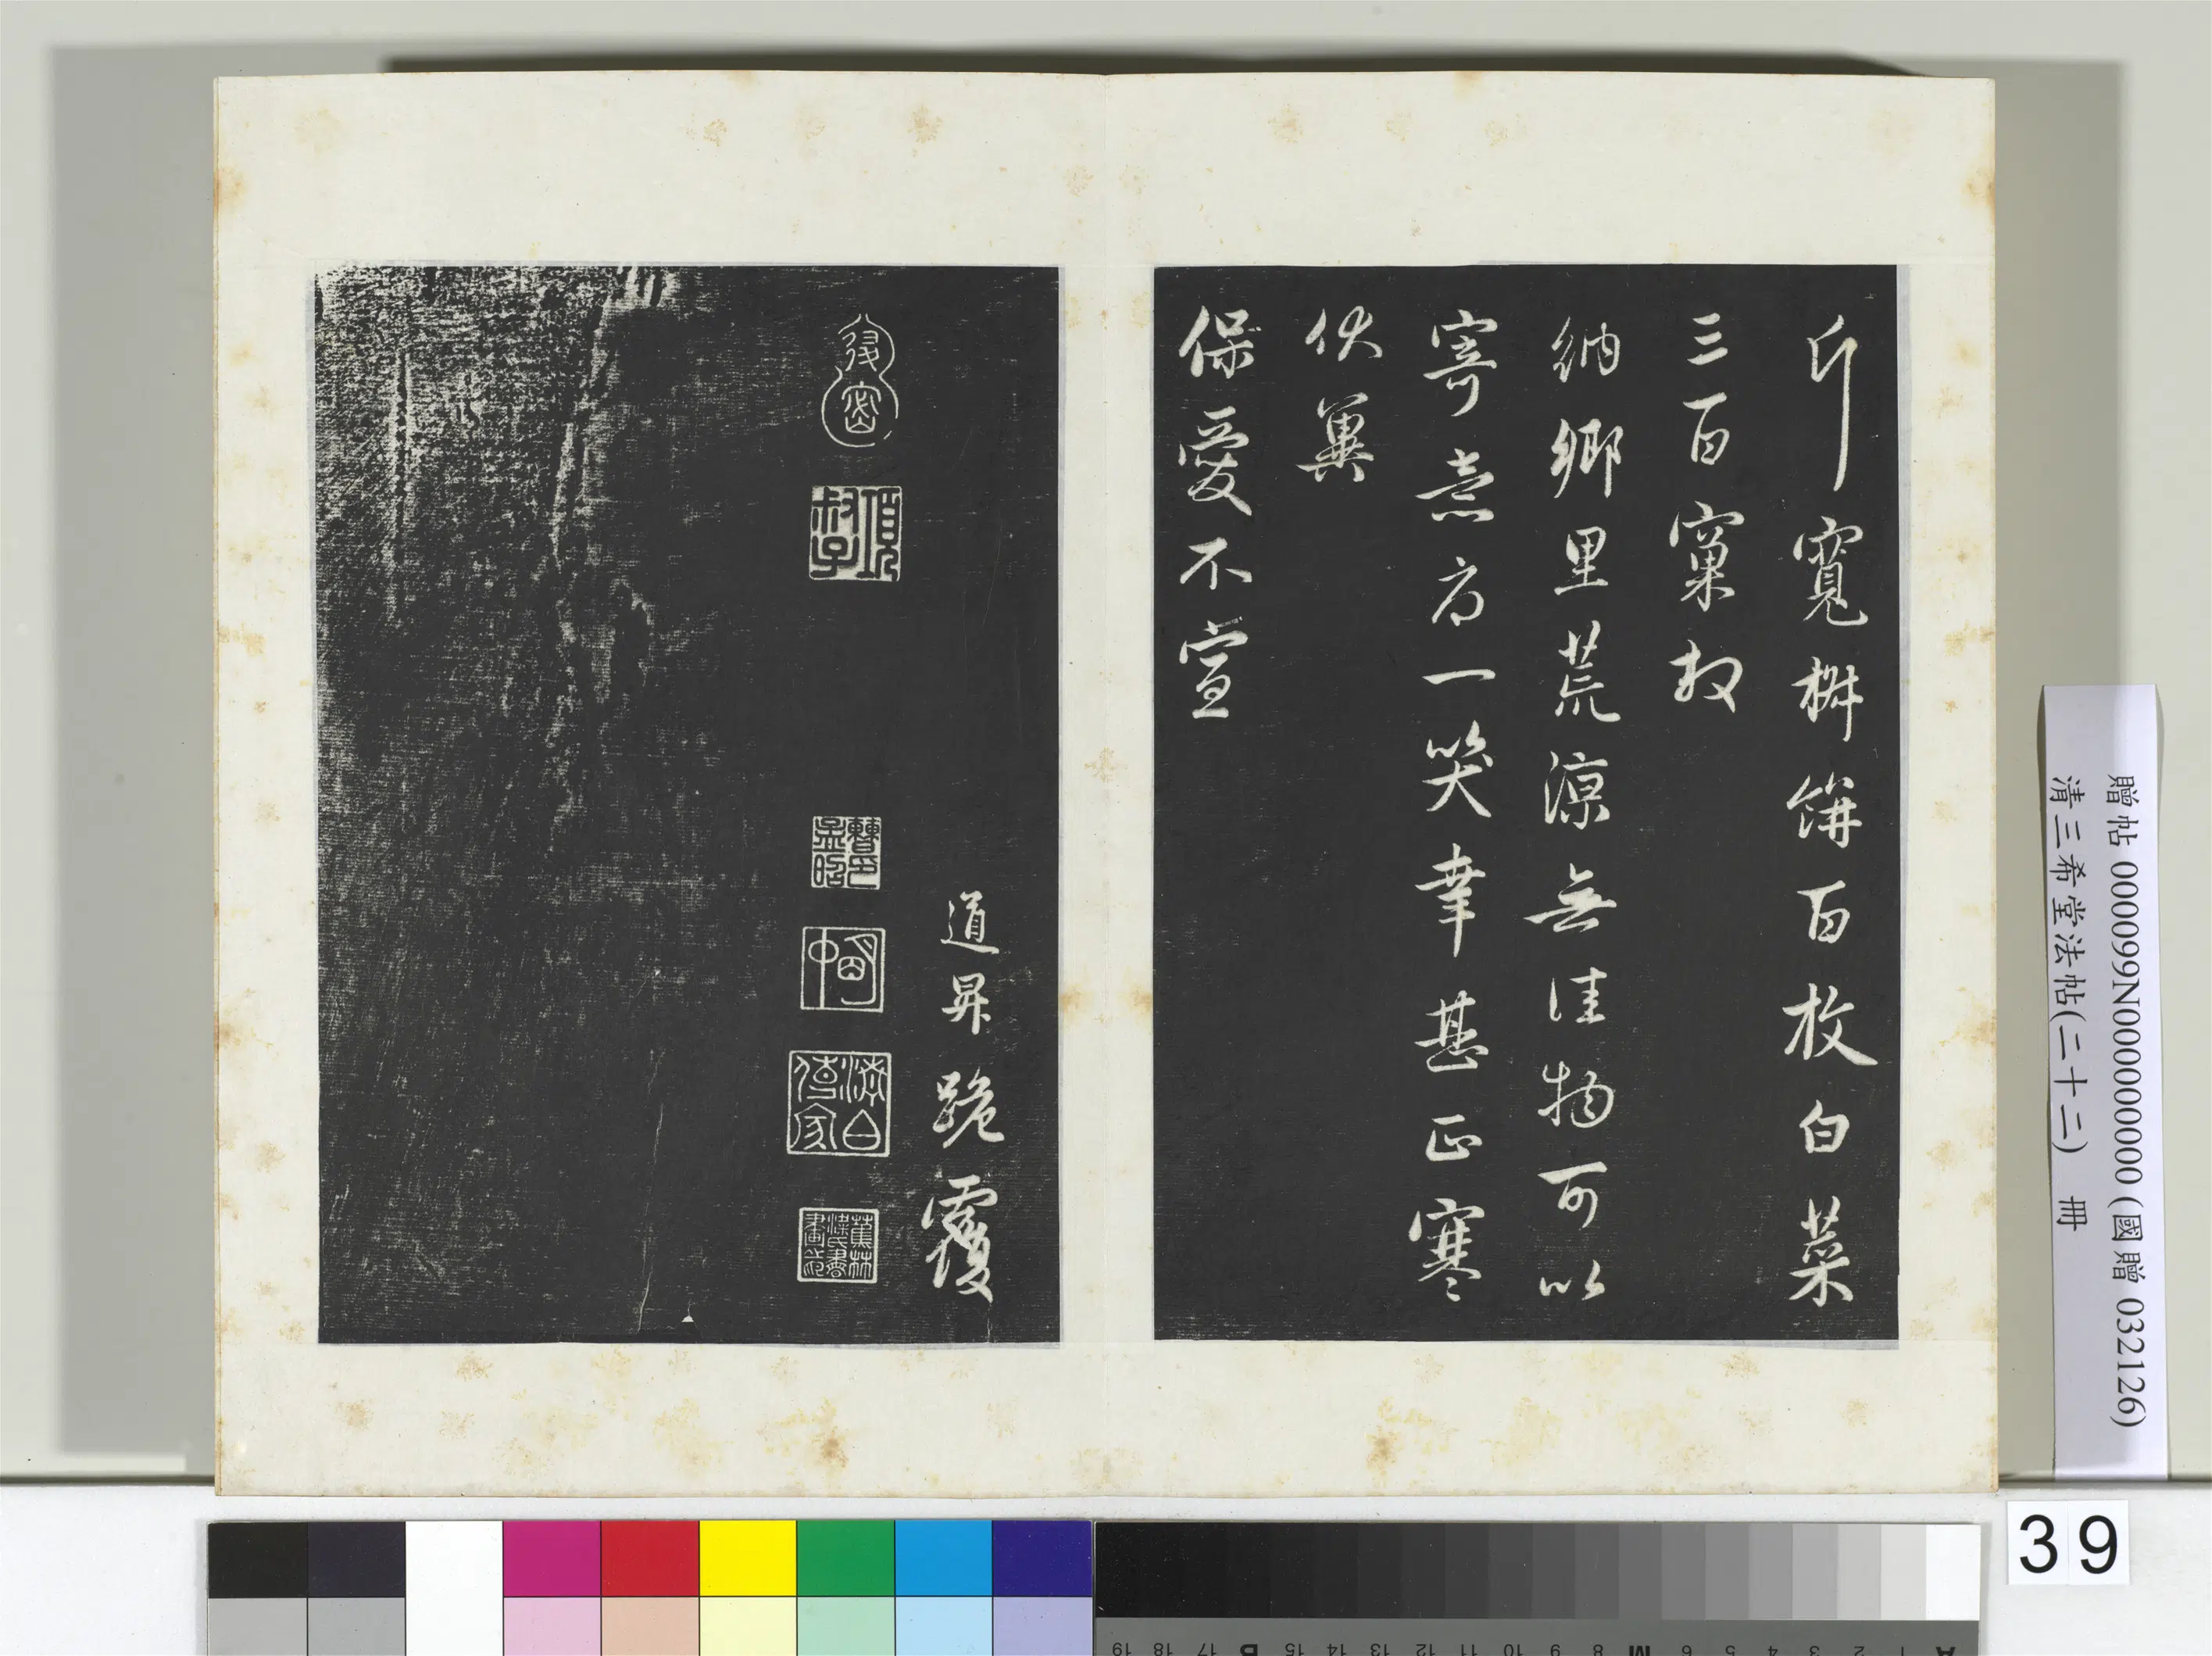 斤寬餅百枚白菜
三百窠
納鄉里荒涼無佳物可以
寄意為一笑幸甚正寒
伏冀
保愛不宣
道昇跪覆
項叔子
清白傳家
蕉林梁氏書畫之印
贈帖 000099N000000000 (國贈 032126)
清三希堂法帖(二十二) 冊
39
A 1 2 3 4 5 6 M 8 9 10 11 12 13 14 15 B 17 18 19